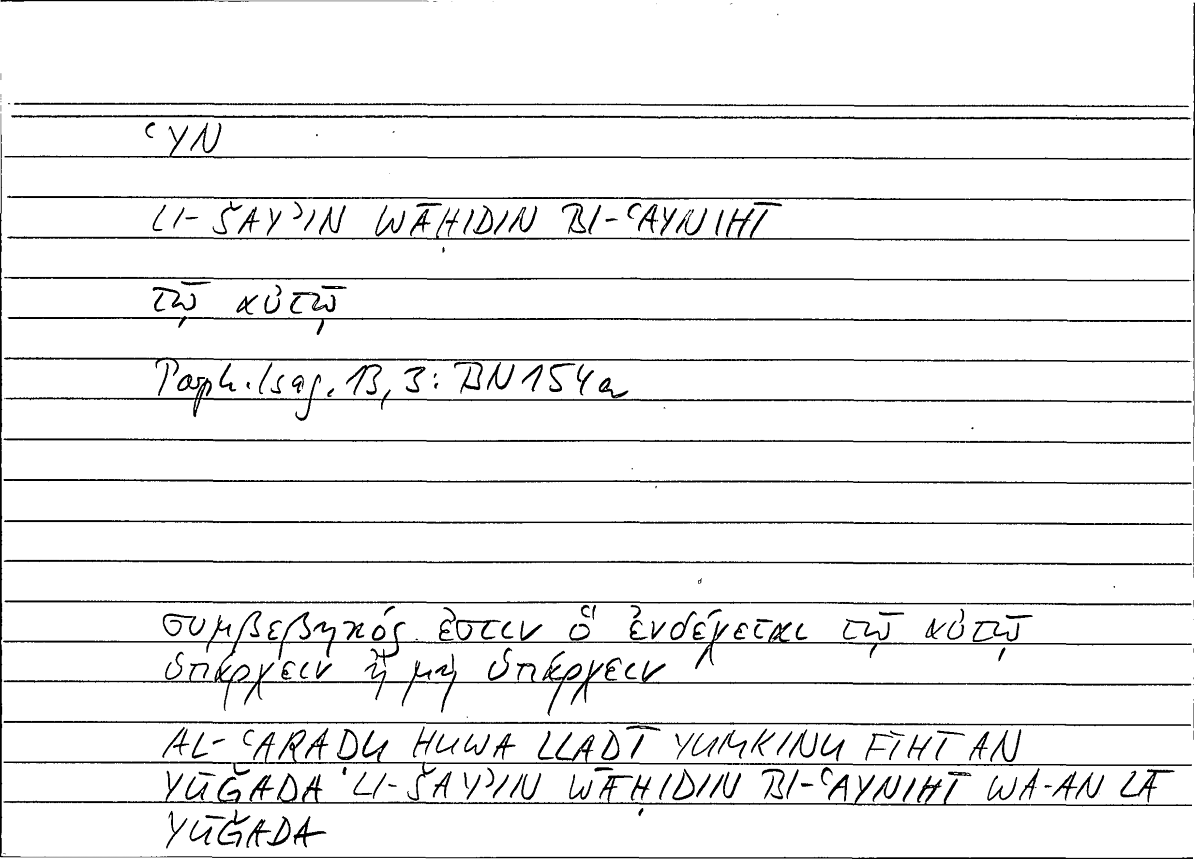 ʿYN
LI-ŠAYʾIN WĀḤIDIN BI-ʿAYNIHĪ
τῷ αὐτῷ
Porph. Isag. 13, 3: BN 154a
συμβεβηκός ἐστιν ὃ ἐνδέχεται τῷ αὐτῷ
ὑπάρχειν ἢ μὴ ὑπάρχειν
AL-ʿARADU HUWA LLADĪ YUMKINU FĪHĪ AN
YŪǦADA LI-ŠAYʾIN WĀḤIDIN BI-ʿAYNIHĪ WA-AN LĀ
YŪǦADA